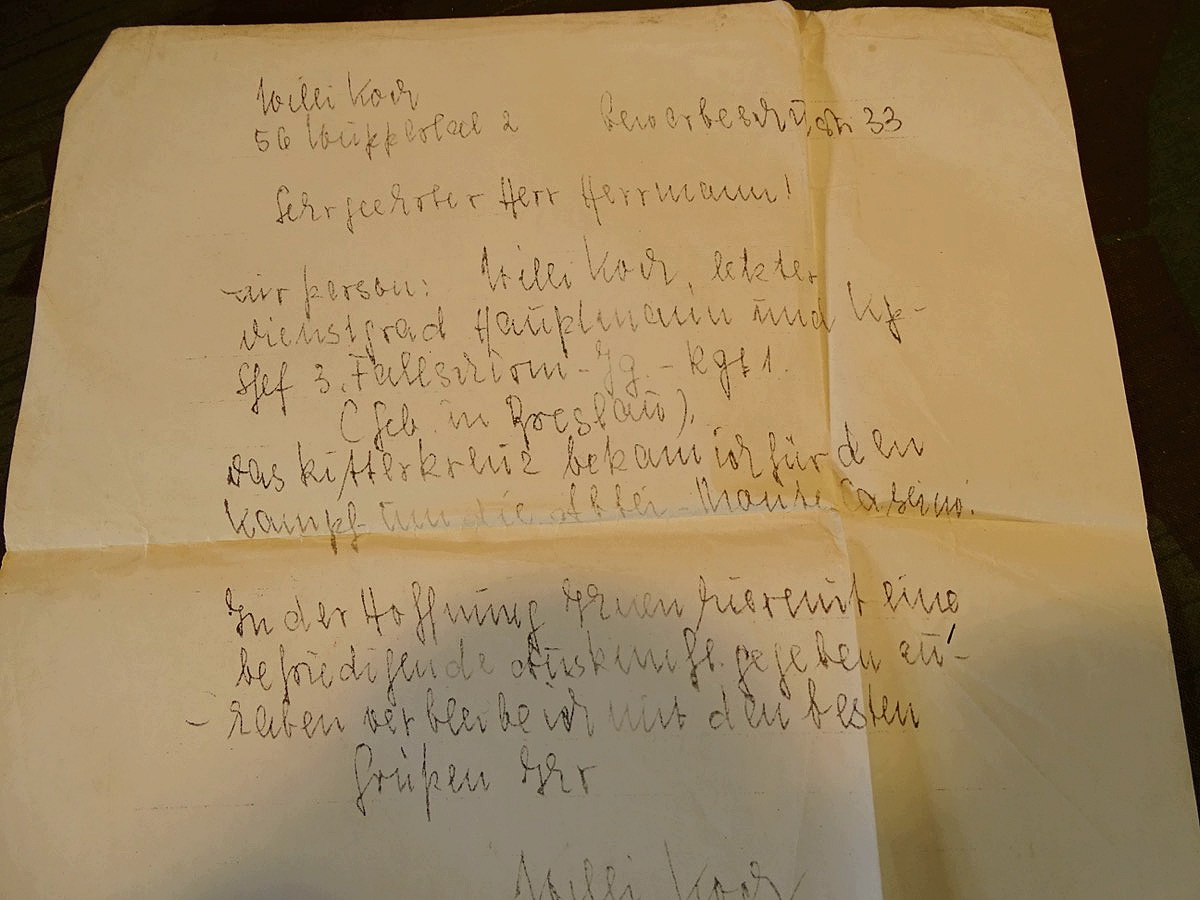 Willi Koch
56 Wuppertal 2 Gewerbeschulstr 33
Sehr geehrter Herr Herrmann!
zur person: Willi Koch, letzter
Dienstgrad Hauptmann und Kp-
Chef 3. Fallschirm-Jg.-Rgt 1.
(Geb. in Breslau),
das Ritterkreuz bekam ich für den
Kampf um die Abtei-Monte Casino.
In der Hoffnung Ihnen hiermit eine
befriedigende Auskunft gegeben zu-
haben verbleibe ich mit den besten
Grüßen Ihr
Willi Koch